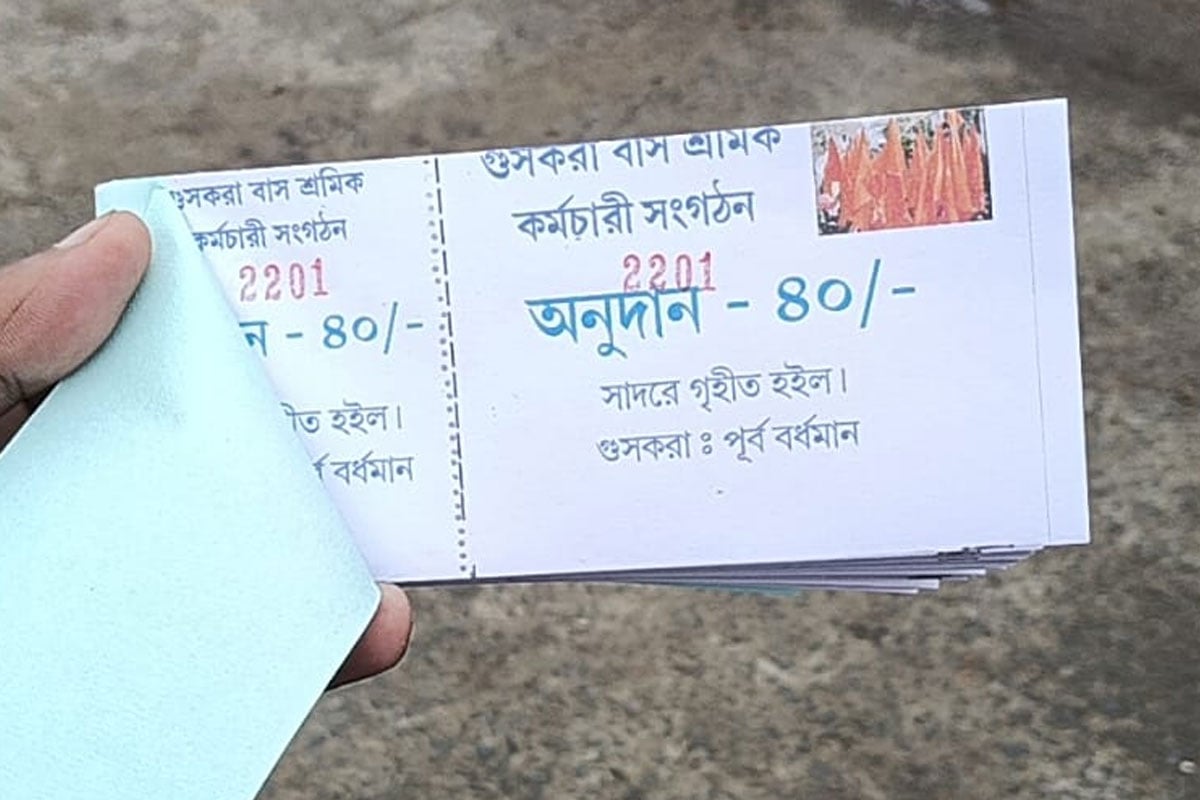 গুসকরা বাস শ্রমিক
কর্মচারী সংগঠন
2201
ন - ৪০/-
হইল।
বর্ধমান
গুসকরা বাস শ্রমিক
কর্মচারী সংগঠন
2201
অনুদান - ৪০/-
সাদরে গৃহীত হইল।
গুসকরা ঃ পূর্ব বর্ধমান